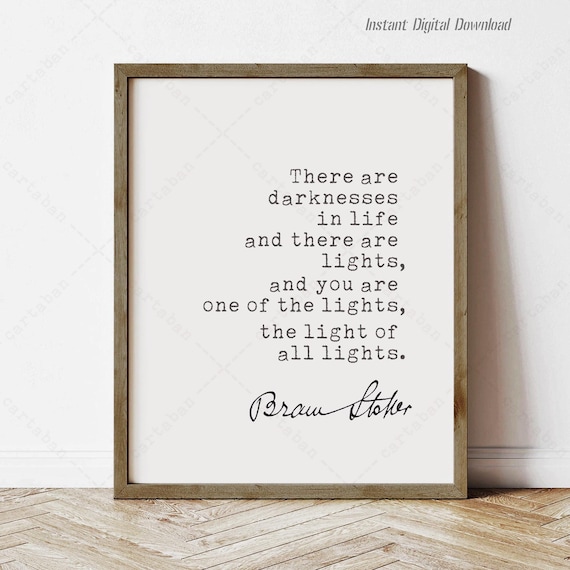 Instant Digital Download
There are
darknesses
in life
and there are
lights,
and you are
one of the lights,
the light of
all lights.
Bram Stoker
cartaban